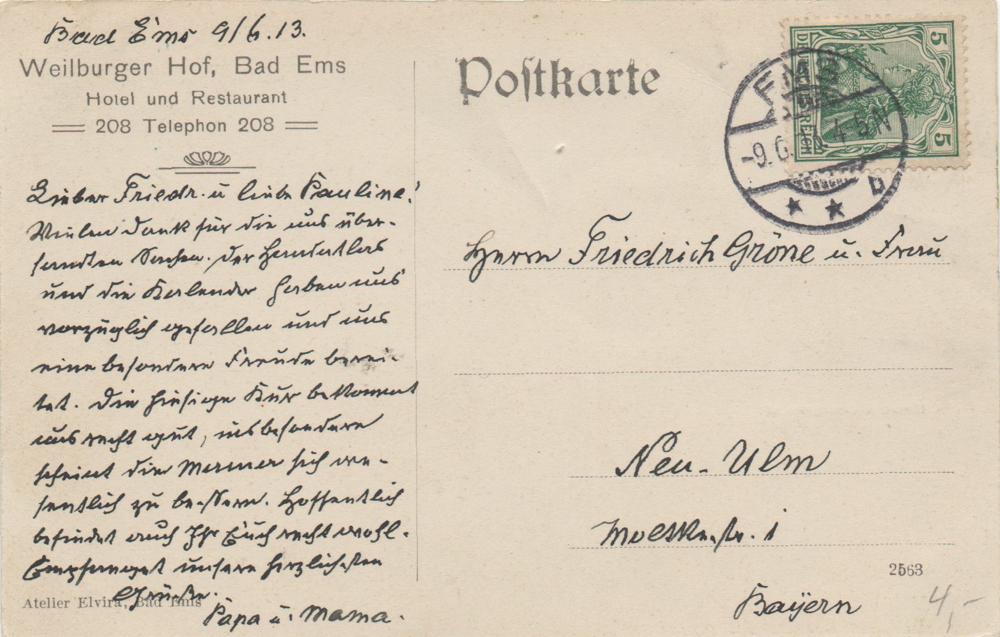 Bad Ems 9/6.13.
Weilburger Hof, Bad Ems
Hotel und Restaurant
208 Telephon 208
Lieber Friedr. u liebe Pauline!
Vielen Dank für die uns über-
sandten Sachen. Der Handatlas
und die Kalender haben uns
vorzüglich gefallen und uns
eine besondere Freude berei-
tet. Die hiesige Kur bekommt
uns recht gut, insbesondere
scheint die Mama sich we-
sentlich zu bessern. Hoffentlich
befindet auch Ihr Euch recht wohl.
Empfanget unsere herzlichsten
Grüße.
Papa u. Mama.
Atelier Elvira, Bad Ems
Postkarte
5
DEUTSCHES REICH
5
EMS
-9.6.13. 4-5N
b
Herrn Friedrich Gröne u. Frau
Neu-Ulm
Moltkestr. 1
Bayern
2563
4,-